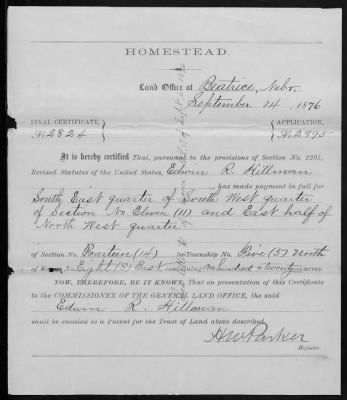 HOMESTEAD.
Land Office at Beatrice, Nebr.
September 14, 1876
FINAL CERTIFICATE, APPLICATION,
No 2824 No 2895
It is hereby certified That, pursuant to the provisions of Section No. 2291,
Revised Statutes of the United States, Edwin R. Hillman
has made payment in full for
South East quarter of South West quarter
of Section No Eleven (11) and East half of
North West quarter
of Section No. Fourteen (14) in Township No. Five (5) North
of Range No. Eight (8) East, containing One hundred & twenty acres.
NOW, THEREFORE, BE IT KNOWN, That on presentation of this Certificate
to the COMMISSIONER OF THE GENERAL LAND OFFICE, the said
Edwin R. Hillman
shall be entitled to a Patent for the Tract of Land above described.
H W Parker
Register.